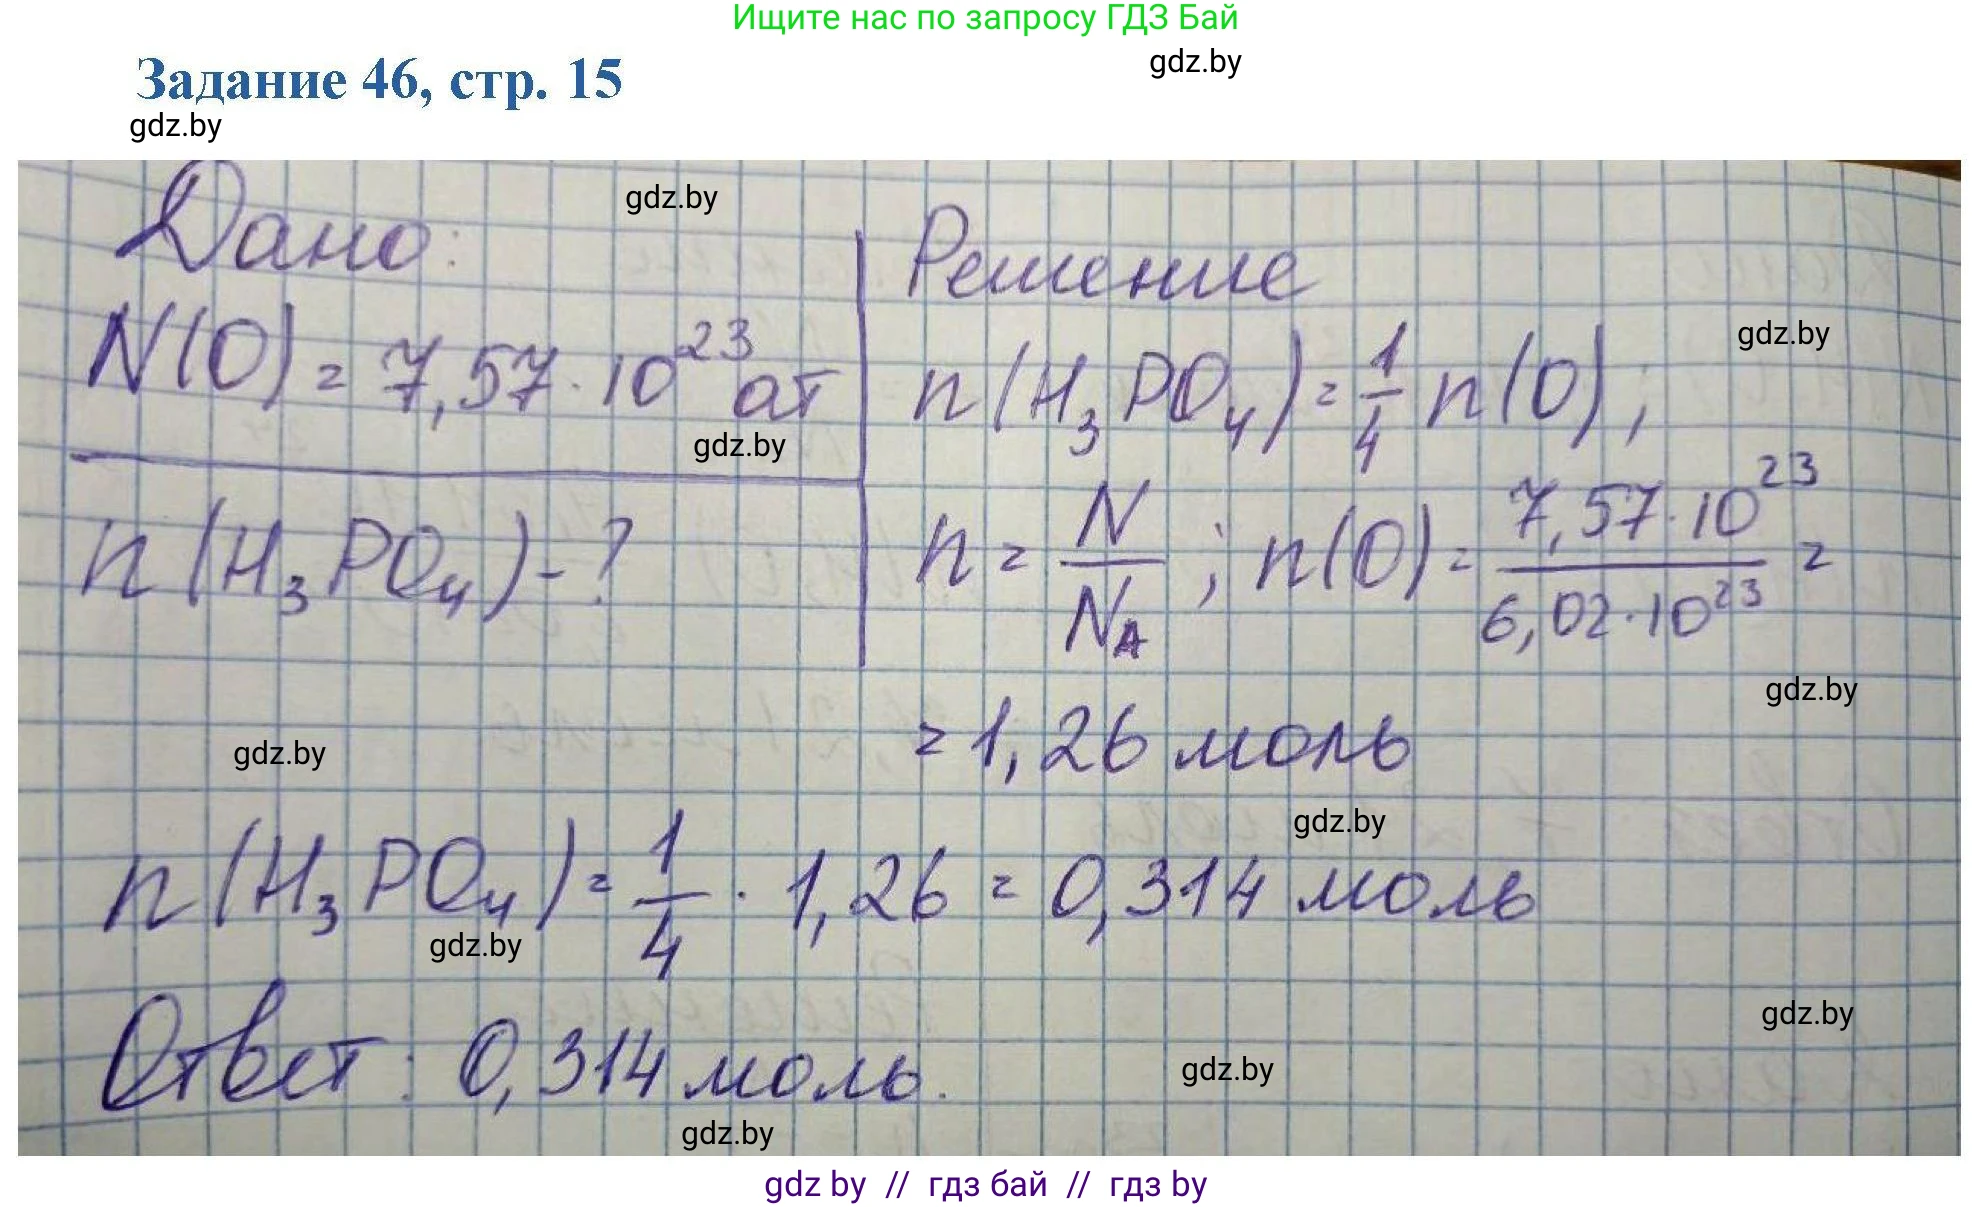 Ищите нас по запросу ГДЗ Бай
gdz.by
Задание 46, стр. 15
gdz.by
gdz.by
Дано:
N(O) = 7,57·10²³ ат
gdz.by
n(H₃PO₄) - ?
Решение
gdz.by
n(H₃PO₄) = 1/4 n(O);
n = N/Nᴀ; n(O) = 7,57·10²³/6,02·10²³ =
gdz.by
= 1,26 моль
gdz.by
gdz.by
n(H₃PO₄) = 1/4 · 1,26 = 0,314 моль
gdz.by
gdz.by
Ответ: 0,314 моль.
gdz.by
gdz.by
gdz by // гдз бай // гдз by